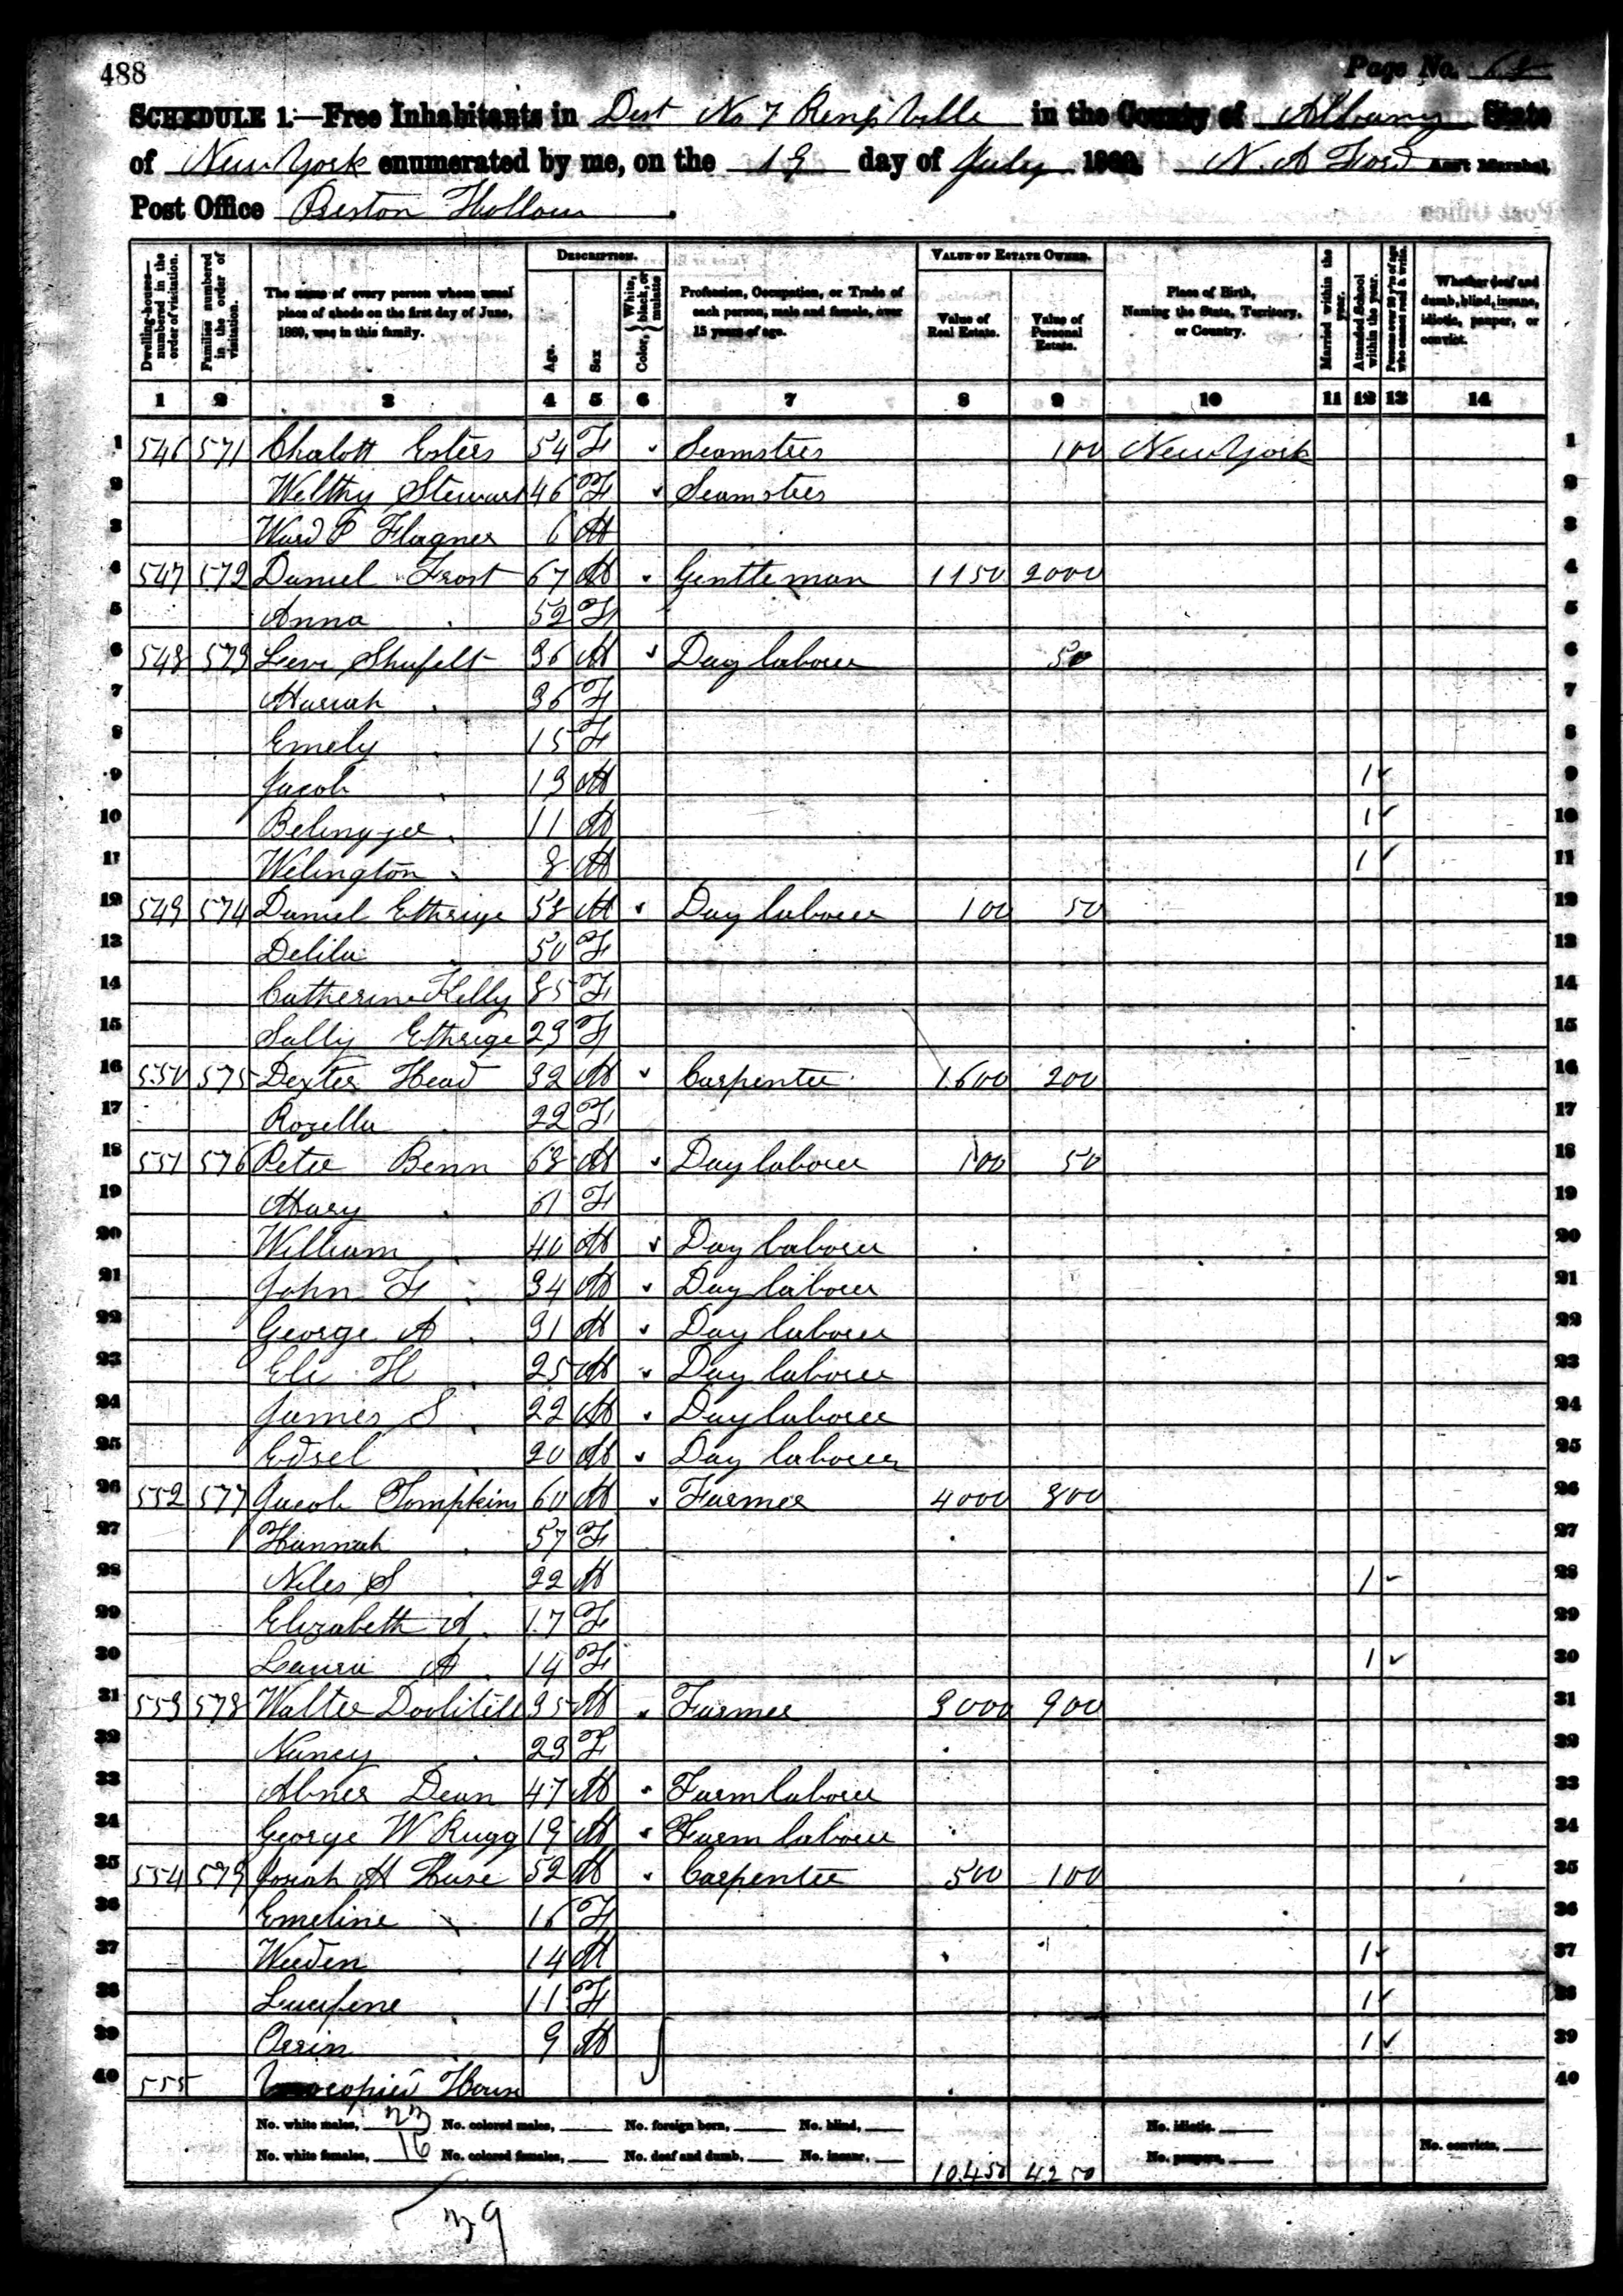 488
Page No. 68
SCHEDULE 1.—Free Inhabitants in Dist No 7 Rensville in the County of Albany State
of New York enumerated by me, on the 19 day of July 1860. N. A Ford Ass't Marshal.
Post Office Preston Hollow.
DESCRIPTION. VALUE OF ESTATE OWNED.
Dwelling-houses—numbered in the order of visitation. Families numbered in the order of visitation. The name of every person whose usual place of abode on the first day of June, 1860, was in this family. Age. Sex Color, White, black, or mulatto Profession, Occupation, or Trade of each person, male and female, over 15 years of age. Value of Real Estate. Value of Personal Estate. Place of Birth, Naming the State, Territory, or Country. Married within the year. Attended School within the year. Persons over 20 y'rs of age who cannot read & write. Whether deaf and dumb, blind, insane, idiotic, pauper, or convict.
1 2 3 4 5 6 7 8 9 10 11 12 13 14
1 546 571 Chalott Esters 54 F Seamstres 100 New York 1
2 Welthy Stewart 46 F Seamstres 2
3 Ward P Flagner 6 M 3
4 547 572 Daniel Frost 67 M Gentleman 1150 2000 4
5 Anna 52 F 5
6 548 573 Leve Shufelt 36 M Day laborer 50 6
7 Mariah 36 F 7
8 Emely 15 F 8
9 Jacob 13 M 1 9
10 11 M 1 10
11 Welington 8 M 1 11
12 549 574 Daniel Ethrige 58 M Day laborer 100 50 12
13 Delila 50 F 13
14 Catherine Kelly 85 F 14
15 Sally Ethrige 23 F 15
16 550 575 Dexter Head 32 M Carpenter 1600 200 16
17 Rozella 22 F 17
18 551 576 Peter Benn 68 M Day laborer 100 50 18
19 Mary 61 F 19
20 William 40 M Day laborer 20
21 John F 34 M Day laborer 21
22 George A 31 M Day laborer 22
23 Ele H 25 M Day laborer 23
24 James S 22 M Day laborer 24
25 Edsel 20 M Day laborer 25
26 552 577 Jacob Tompkins 60 M Farmer 4000 800 26
27 Hannah 57 F 27
28 Niles S 22 M 1 28
29 Elizabeth A 17 F 29
30 Laura A 14 F 1 30
31 553 578 Walter Doolitell 35 M Farmer 3000 900 31
32 Nancy 23 F 32
33 Abner Dean 47 M Farm laborer 33
34 George W Rugg 19 M Farm laborer 34
35 554 579 Josiah H Huse 52 M Carpenter 500 100 35
36 Emeline 16 F 36
37 Weeden 14 M 1 37
38 11 F 1 38
39 Orrin 9 M 1 39
40 555 Unocopied House 40
No. white males, 23 No. colored males, No. foreign born, No. blind, No. idiotic,
No. white females, 16 No. colored females, No. deaf and dumb, No. insane, 10.450 4250 No. paupers, No. convicts,
39